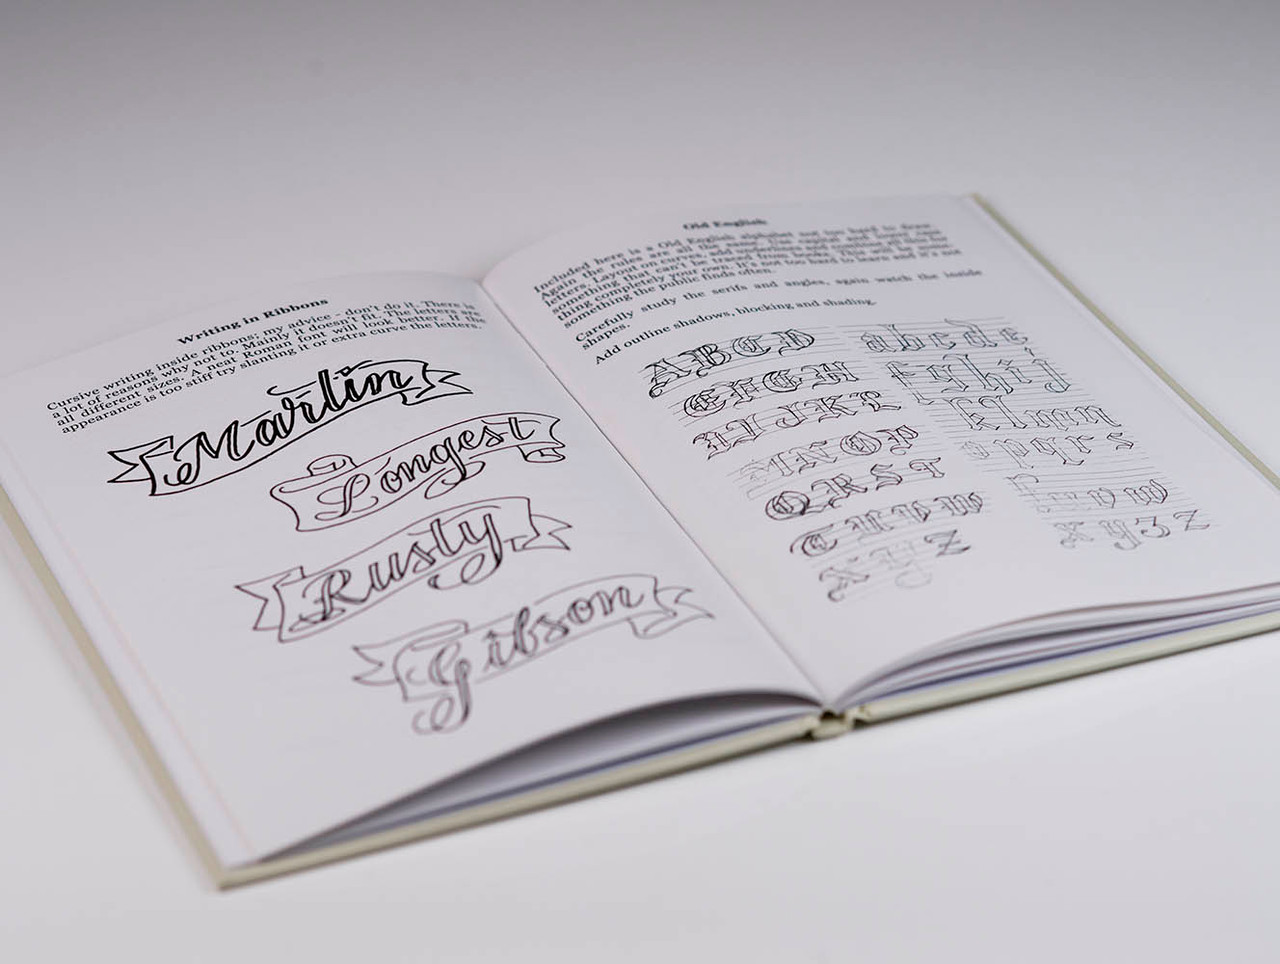 Writing in Ribbons
Cursive writing inside ribbons: my advice - don't do it. There is
a lot of reasons why not to. Mainly it doesn't fit. The letters are
all different sizes. A neat Roman font will look better. If the
appearance is too stiff try slanting it or extra curve the letters.
Martin
Longest
Rusty
Gibson
Old English
Included here is a Old English alphabet not too hard to draw.
Again the rules are all the same. Use capital and lower case
letters. Layout on curves, add underlines and outline all this for
something that can't be traced from books. This will be some-
thing completely your own. It's not too hard to learn and it's not
something the public finds often.
Carefully study the serifs and angles, again watch the inside
shapes.
Add outline shadows, blocking and shading.
A B C D
E F G H
I J K L
M N O P
Q R S T
U V W
X Y Z
a b c d e
f g h i j
k l m n
o p q r s
t u v w
x y z z